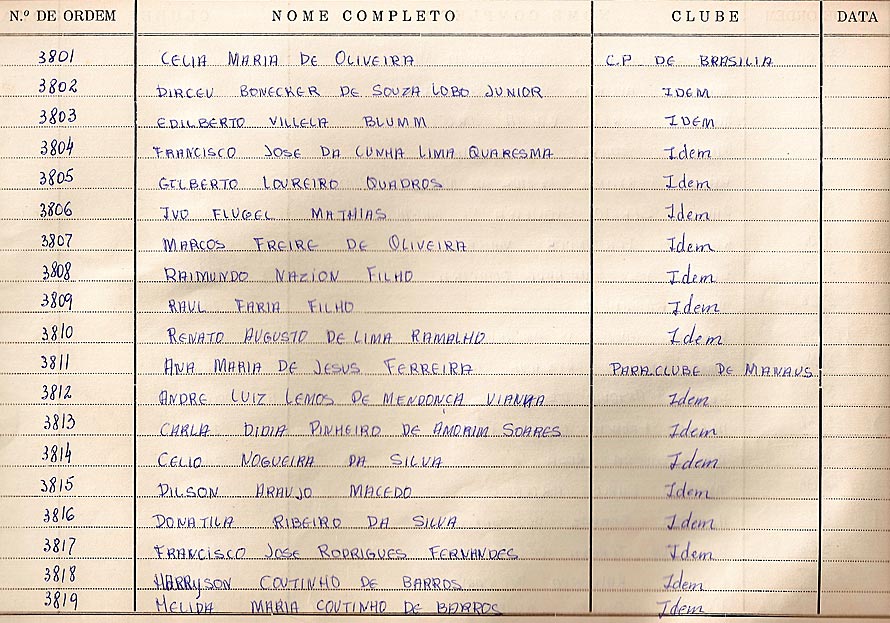 N.º DE ORDEM NOME COMPLETO CLUBE DATA
3801 CELIA MARIA DE OLIVEIRA C.P DE BRASILIA
3802 DIRCEU BONECKER DE SOUZA LOBO JUNIOR IDEM
3803 EDILBERTO VILLELA BLUMM IDEM
3804 FRANCISCO JOSE DA CUNHA LIMA QUARESMA Idem
3805 GILBERTO LOUREIRO QUADROS Idem
3806 IVO FLUGEL MATHIAS Idem
3807 MARCOS FREIRE DE OLIVEIRA Idem
3808 RAIMUNDO NAZION FILHO Idem
3809 RAUL FARIA FILHO Idem
3810 RENATO AUGUSTO DE LIMA RAMALHO Idem
3811 ANA MARIA DE JESUS FERREIRA PARA.CLUBE DE MANAUS
3812 ANDRE LUIZ LEMOS DE MENDONÇA VIANNA Idem
3813 CARLA DIDIA PINHEIRO DE AMORIM SOARES Idem
3814 CELIO NOGUEIRA DA SILVA Idem
3815 DILSON ARAUJO MACEDO Idem
3816 DONATILA RIBEIRO DA SILVA Idem
3817 FRANCISCO JOSE RODRIGUES FERNANDES Idem
3818 HARRYSON COUTINHO DE BARROS Idem
3819 HELIDA MARIA COUTINHO DE BARROS Idem